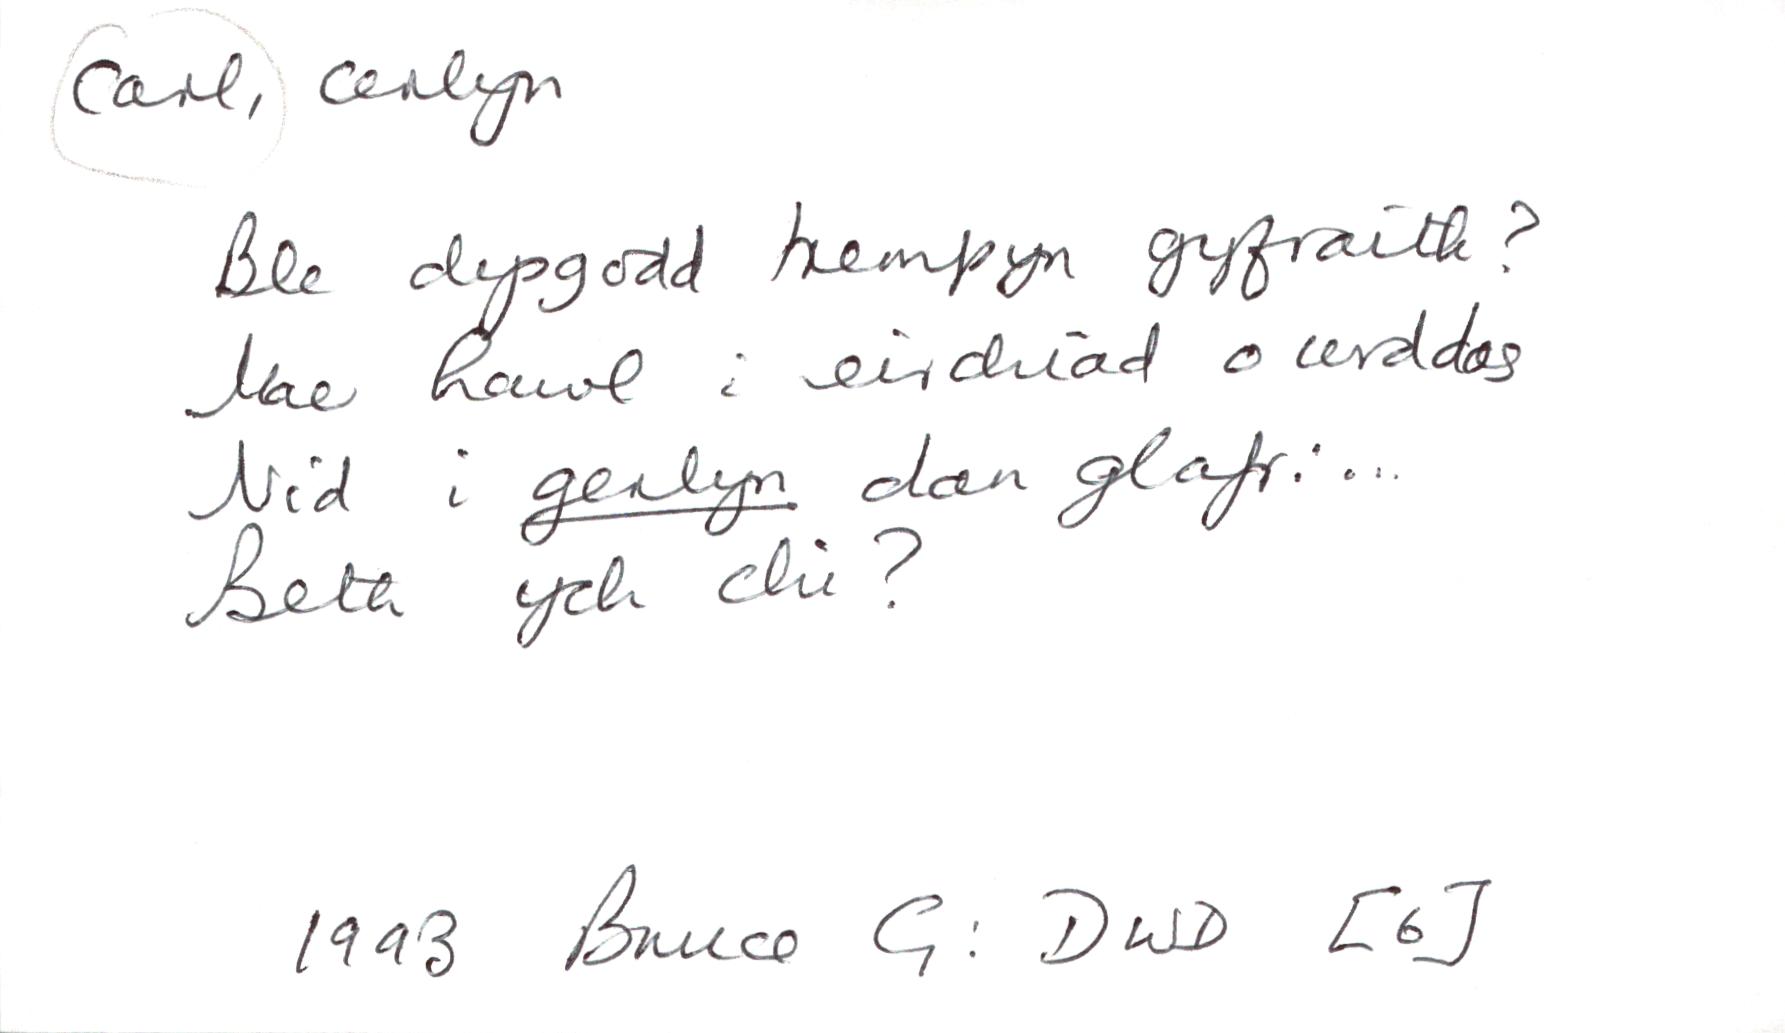 Carl, cerlyn
Ble dysgodd trempyn gyfraith?
Mae hawl i eirchiad o urddas
Nid i gerlyn dan glafri...
Beth ych chi?
1993 Bruce G: DWD [6]